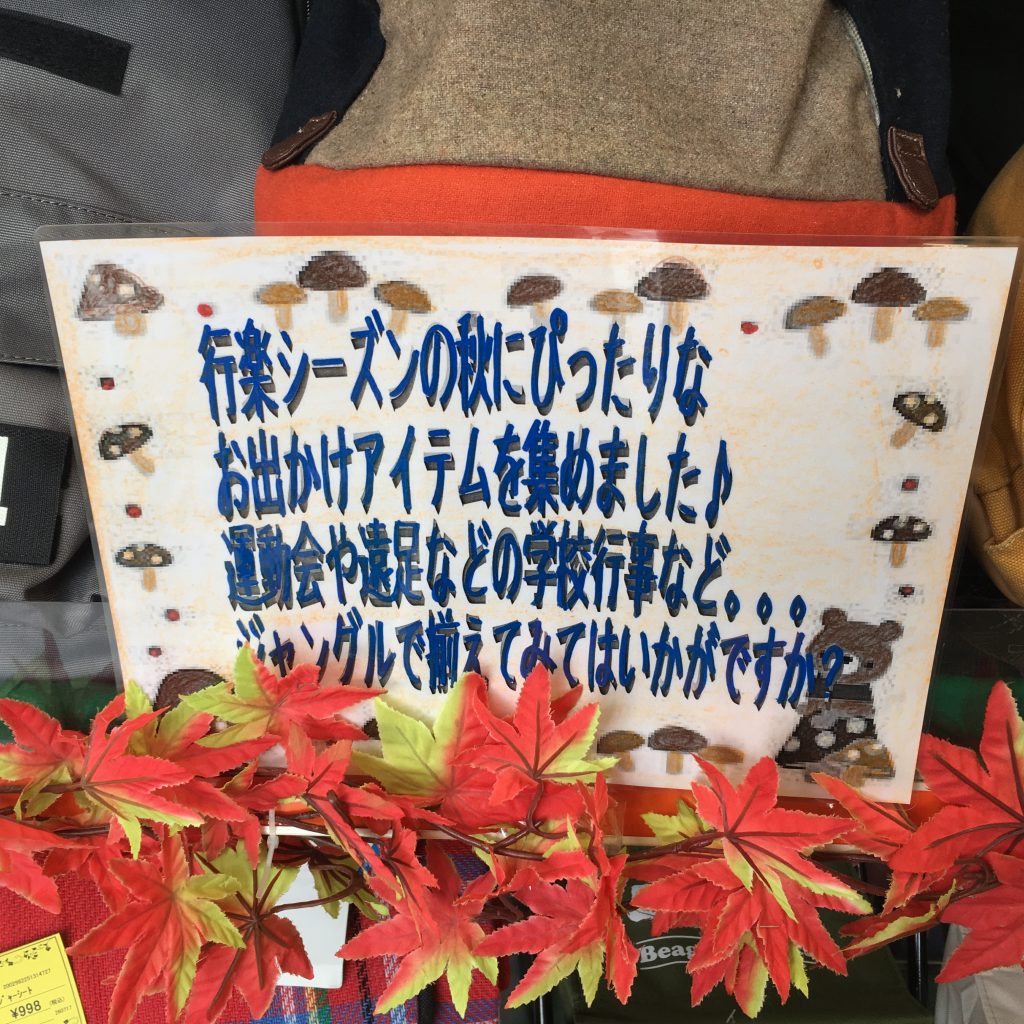 行楽シーズンの秋にぴったりな
お出かけアイテムを集めました♪
運動会や遠足などの学校行事など。。。
ジャングルで揃えてみてはいかがですか?
Beag
2002962251314727
ジャーシート
¥998 (税込)